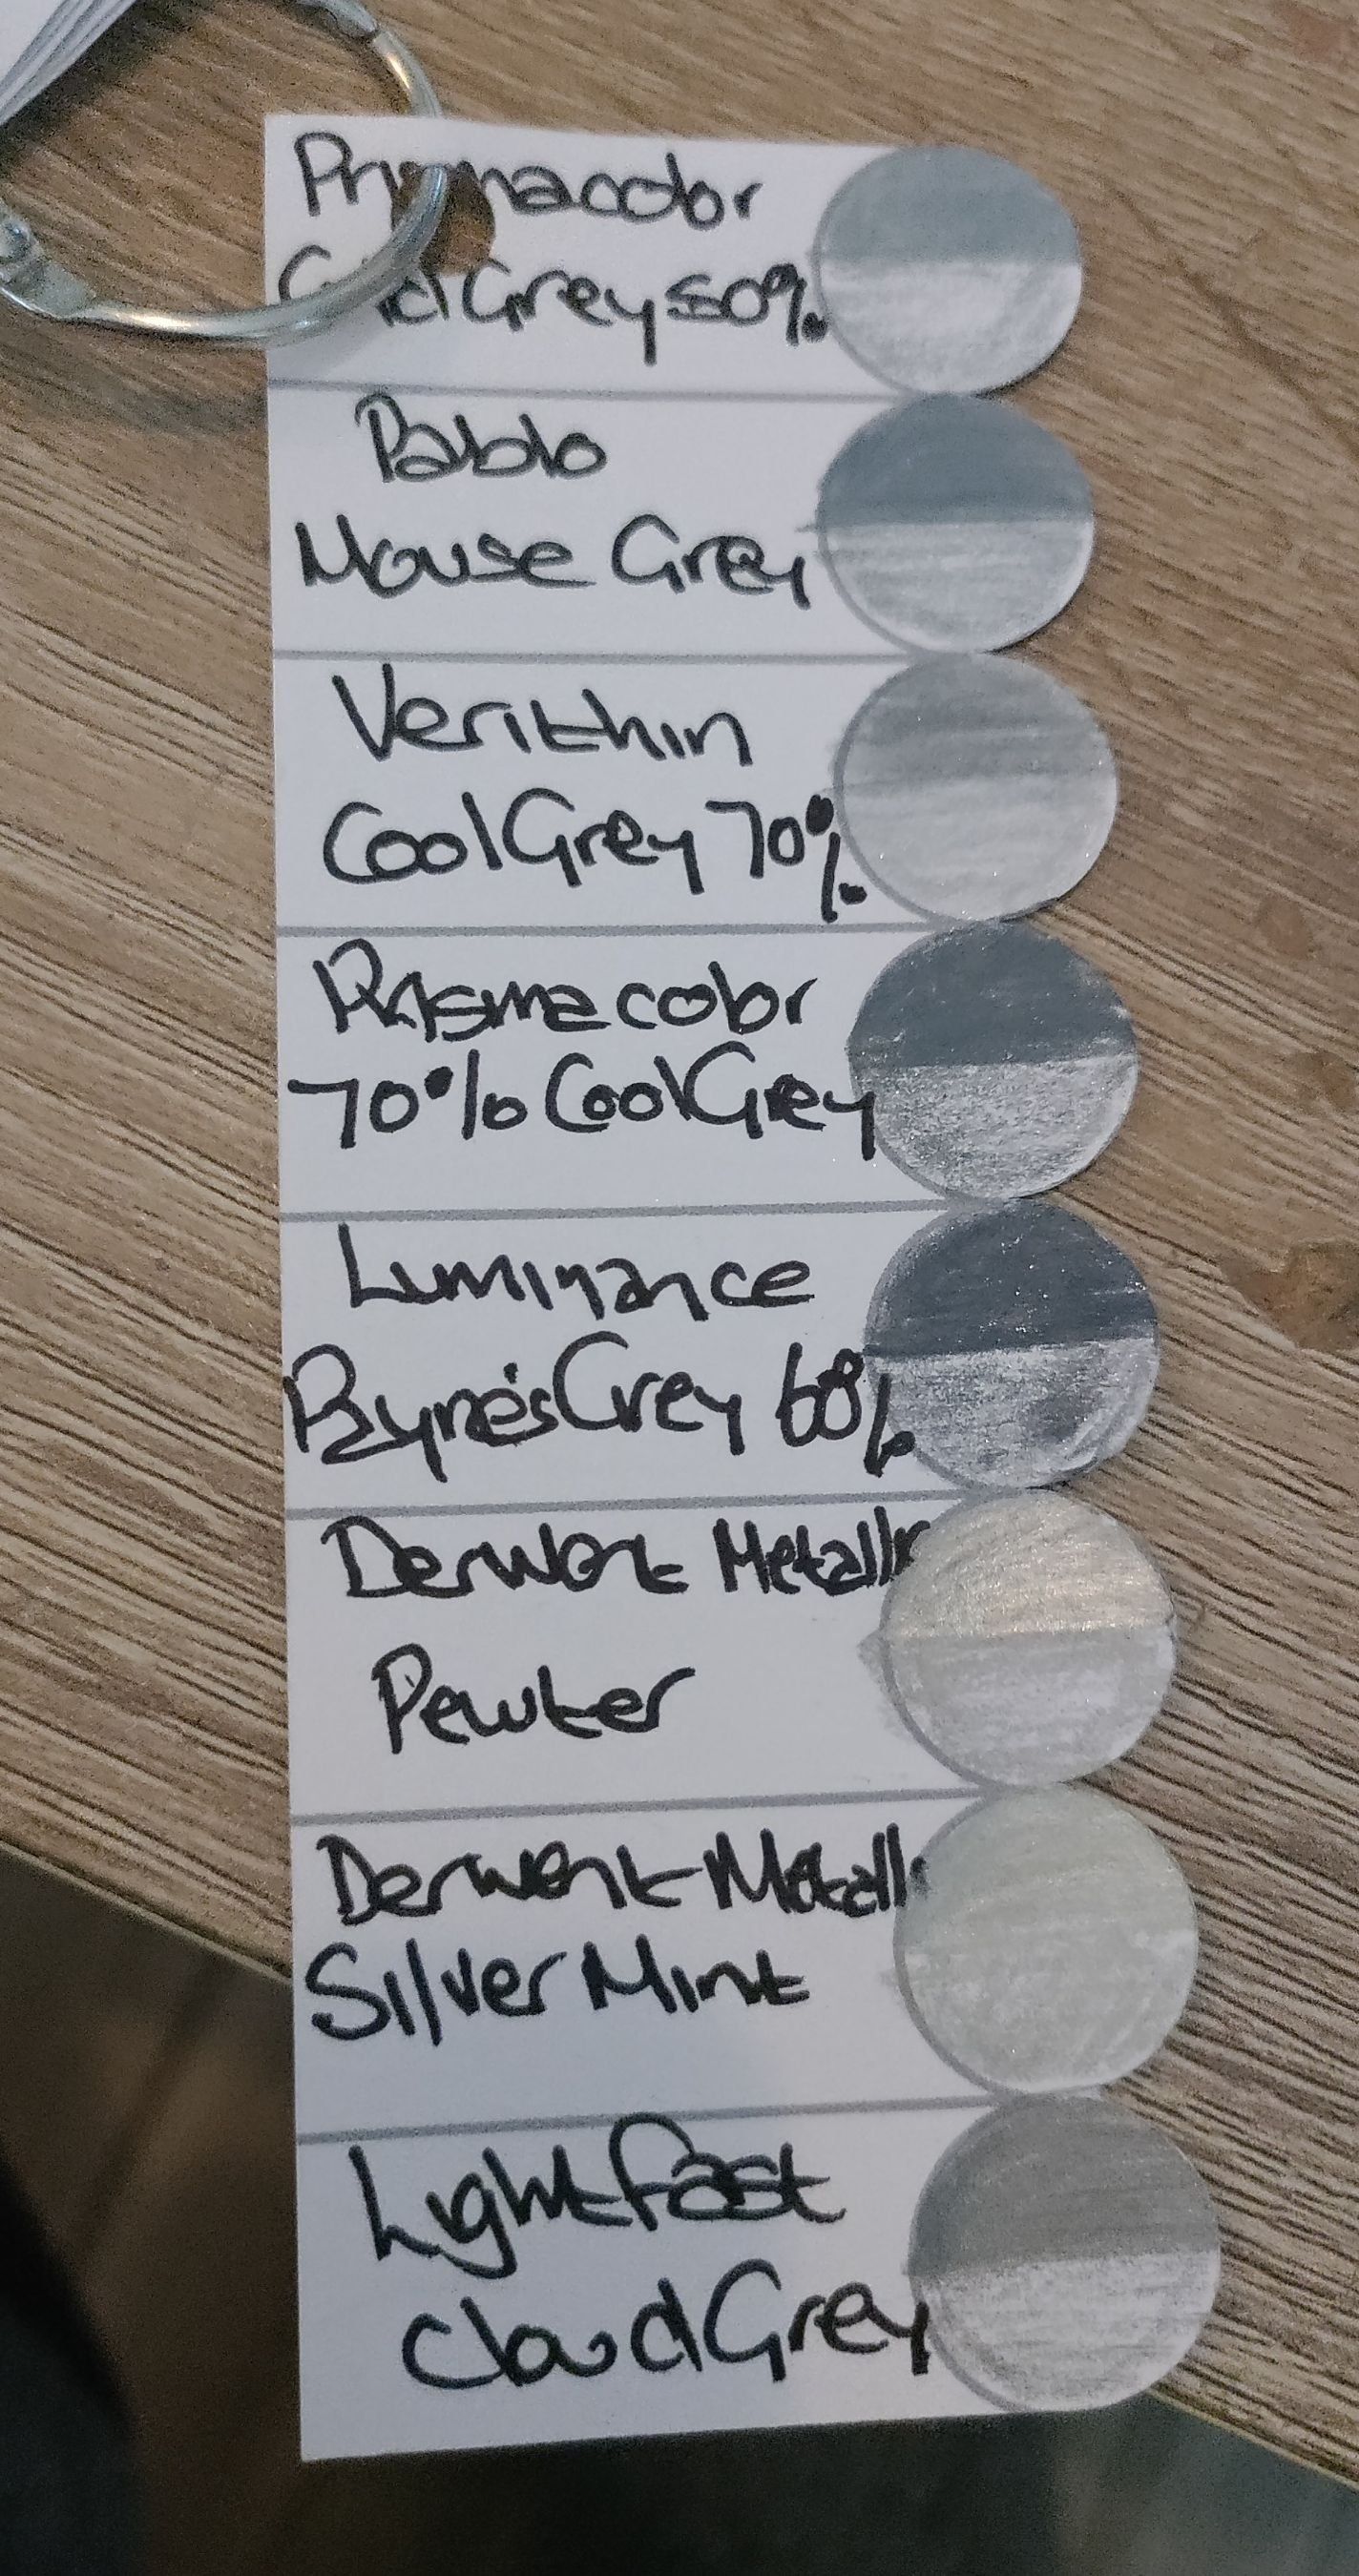 Prismacolor
Grey 50%
Pablo
Mouse Grey
Verithin
Cool Grey 70%
Prismacolor
70% Cool Grey
Luminance
Payne's Grey 60%
Derwent Metallic
Pewter
Derwent Metall
Silver Mint
Lightfast
Cloud Grey